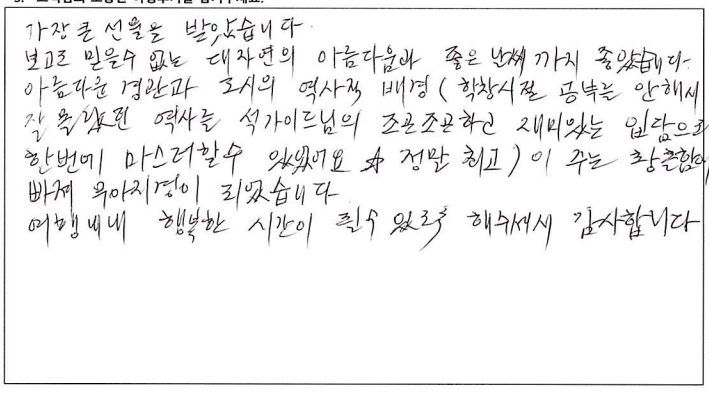 가장 큰 선물을 받았습니다
보고도 믿을수 없는 대자연의 아름다움과 좋은 날씨 까지 좋았습니다.
아름다운 경관과 도시의 역사적 배경 (학창시절 공부를 안해서
잘 몰랐던 역사를 석가이드님의 조곤조곤하고 재미있는 입담으로
한번에 마스터할수 있었어요 ☆ 정말 최고) 이 주는 황홀함에
빠져 무아지경이 되었습니다
여행내내 행복한 시간이 될수 있도록 해주셔서 감사합니다